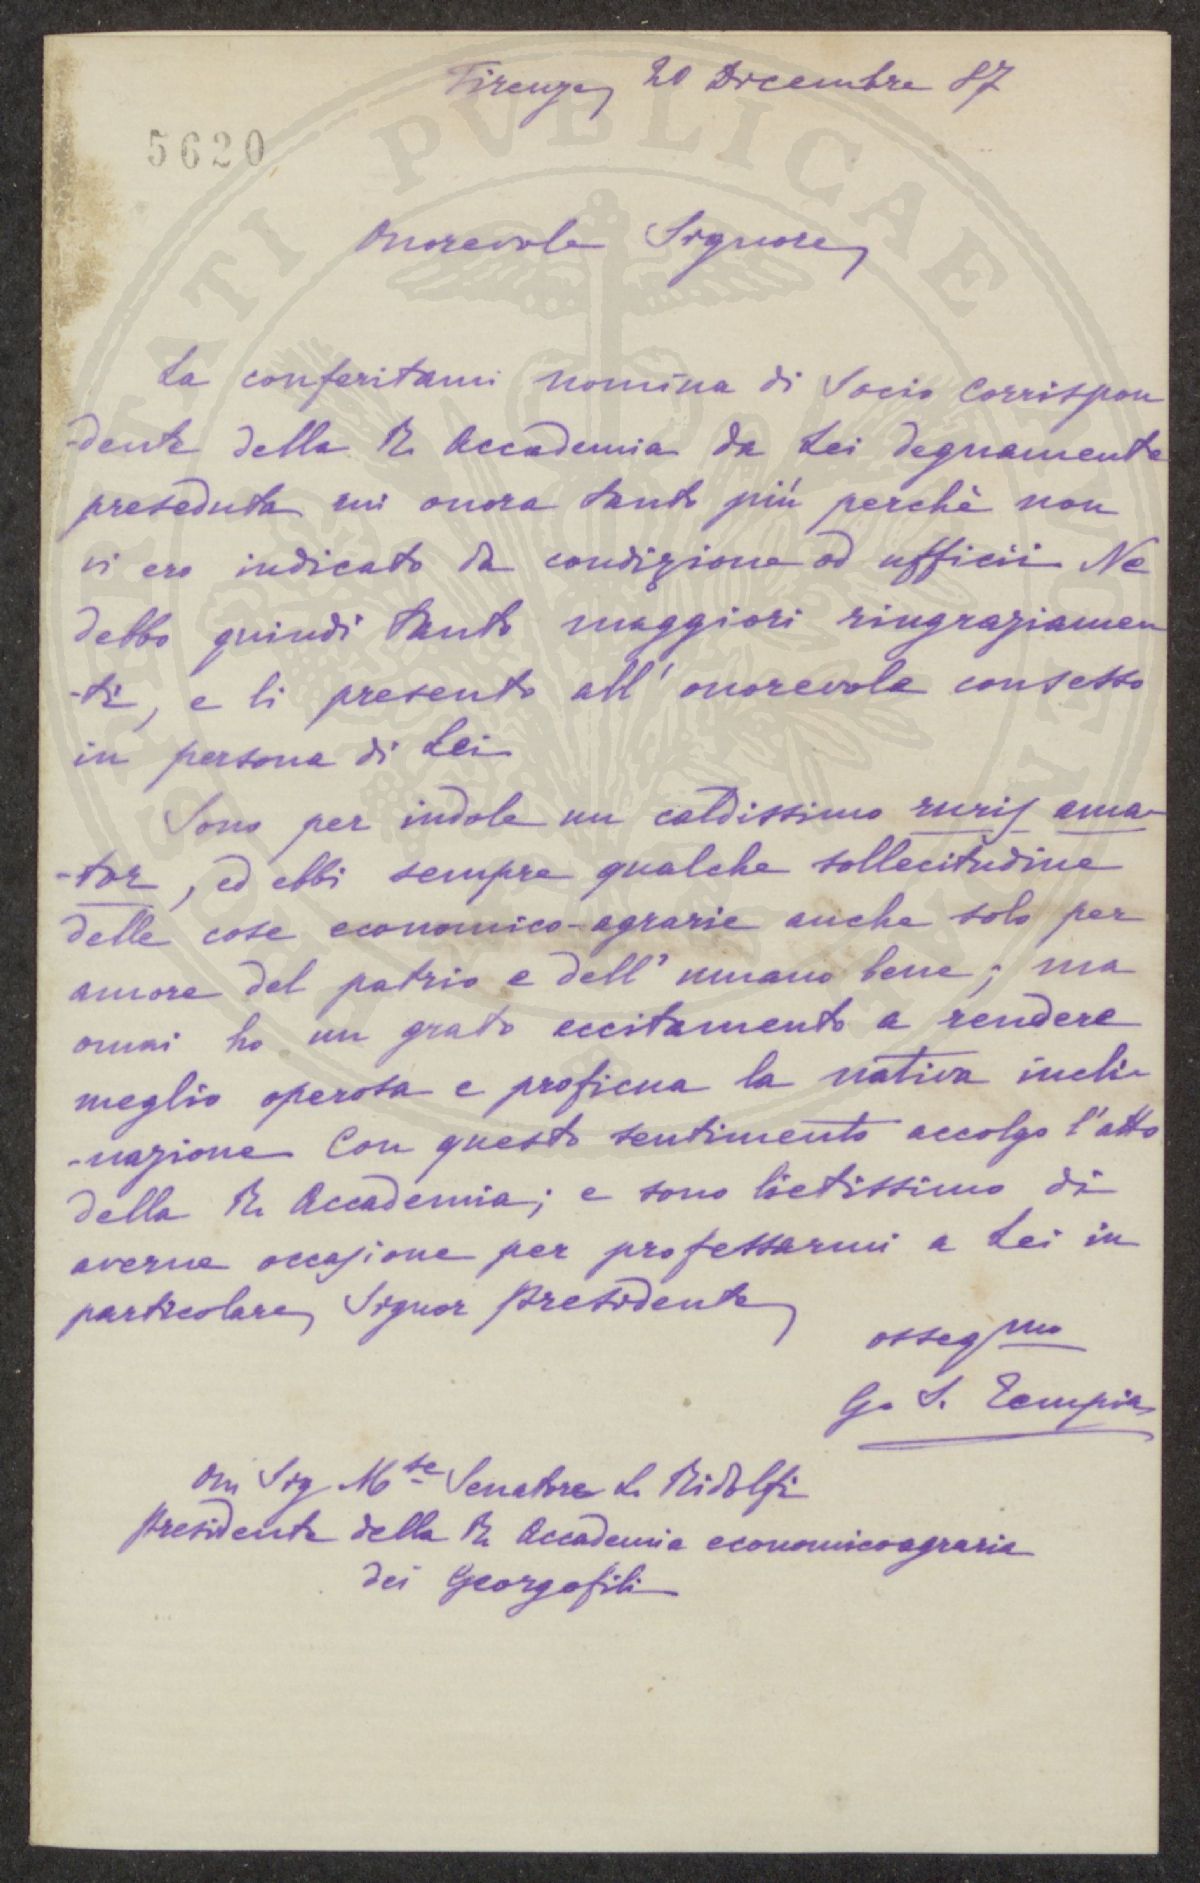 Firenze, 20 Dicembre 87
5620
Onorevole Signore,
La conferitami nomina di Socio Corrispon
-dente della R. Accademia da Lei degnamente
preseduta mi onora tanto più perchè non
vi ero indicato da condizione od ufficii Ne
debbo quindi tanto maggiori ringraziamen
-ti, e li presento all' onorevole consesso
in persona di Lei
Sono per indole un caldissimo ruris ama-
-tor, ed ebbi sempre qualche sollecitudine
delle cose economico-agrarie anche solo per
amore del patrio e dell' umano bene; ma
omai ho un grato eccitamento a rendere
meglio operosa e proficua la nativa incli-
-nazione Con questo sentimento accolgo l'atto
della R. Accademia; e sono lietissimo di
averne occasione per professarmi a Lei in
particolare, Signor Presidente,
osseqmo
G. S. Tempia
On Sig Mse Senatore L. Ridolfi
Presidente della R. Accademia economicoagraria
dei Georgofili